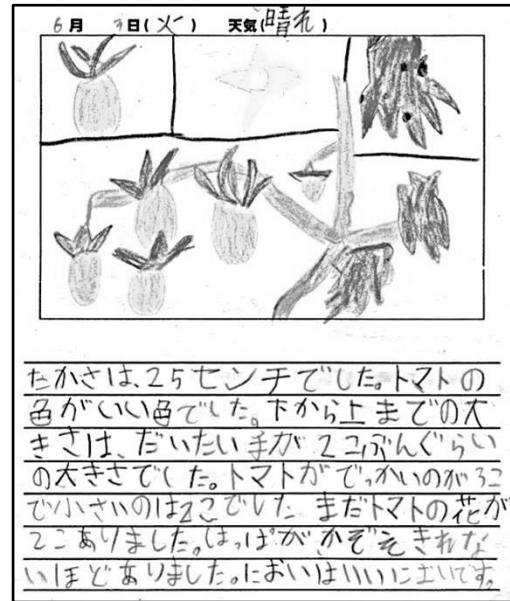 6月 日(火) 天気(晴れ)
たかさは、25センチでした。トマトの
色がいい色でした。下から上までの大
きさは、だいたい手が2こぶんぐらい
の大きさでした。トマトがでっかいのが3こ
で小さいのは2こでした まだトマトの花が
2こありました。はっぱがかぞえきれな
いほどありました。においはいいにおいです。